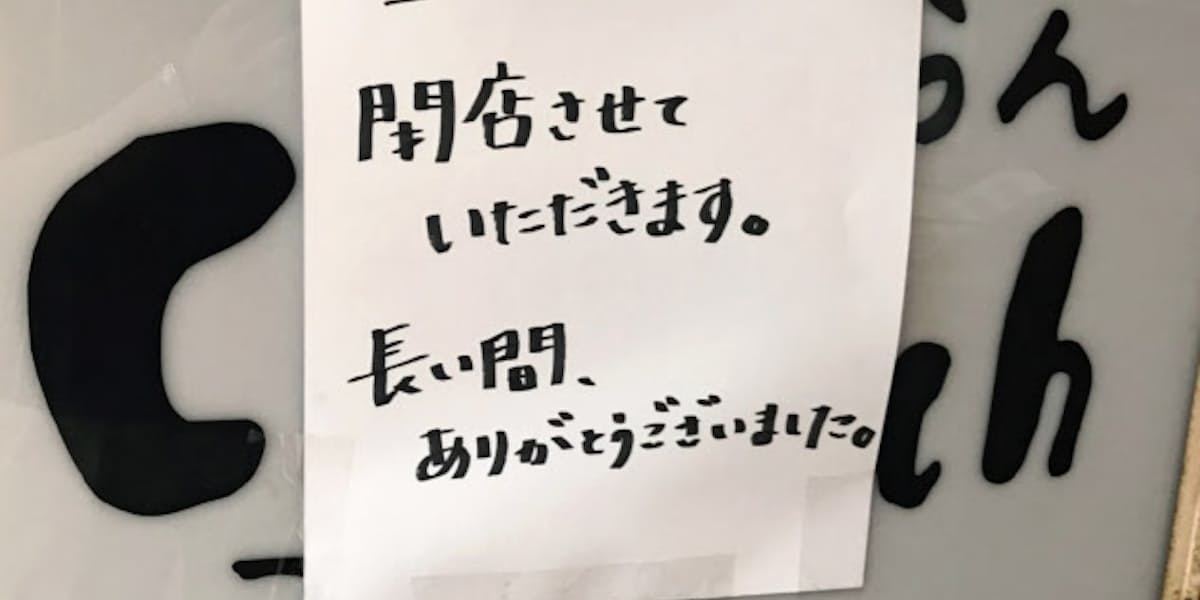 閉店させて
いただきます。
長い間、
ありがとうございました。
C
ch